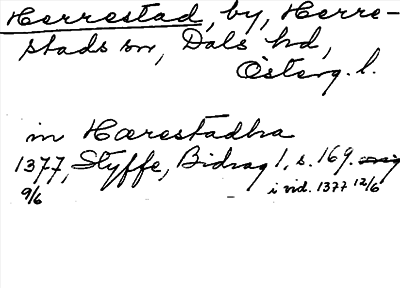 Herrestad, by, Herre-
stads sn, Dals hd,
Österg. l.
in Hærestadha
1377, Styffe, Bidrag 1, s. 169.
9/6 i vid. 1377 12/6